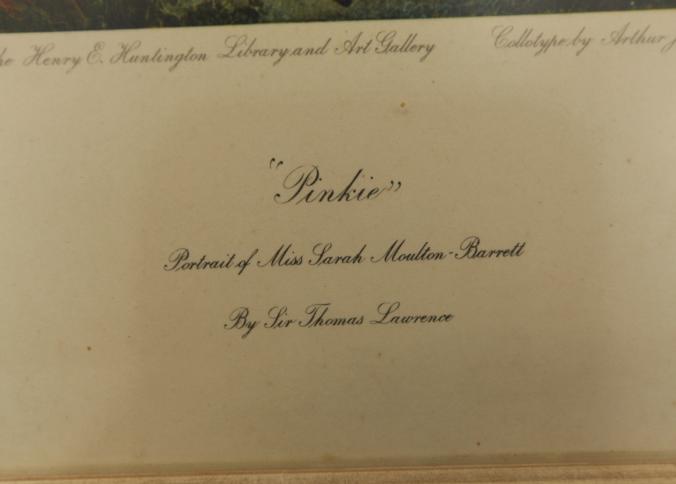 he Henry E. Huntington Library and Art Gallery
Collotype by Arthur J
"Pinkie"
Portrait of Miss Sarah Moulton-Barrett
By Sir Thomas Lawrence